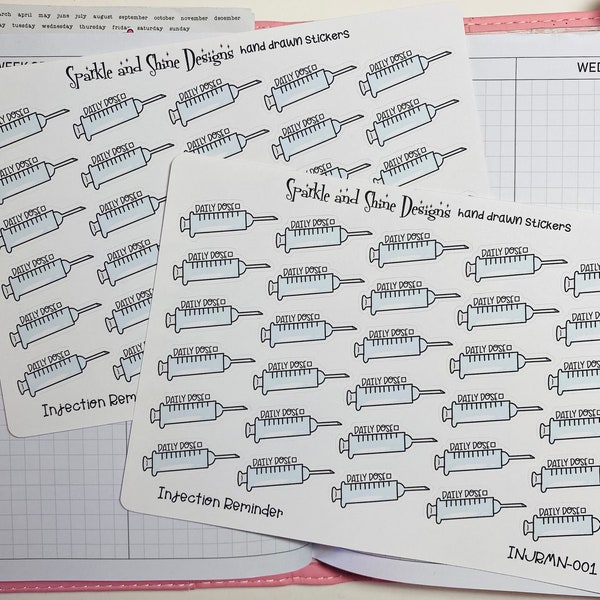 rch april may june july august september october november december
y tuesday wednesday thursday friday saturday sunday
WED
Sparkle and Shine Designs hand drawn stickers
DAILY DOSE DAILY DOSE DAILY DOSE DAILY DOSE
DAILY DOSE DAILY DOSE DAILY DOSE DAILY DOSE DAILY DOSE
DAILY DOSE DAILY DOSE
DAILY DOSE DAILY DOSE
DAILY DOSE DAILY DOSE
DAILY DOSE
Injection Rem
Sparkle and Shine Designs hand drawn stickers
DAILY DOSE DAILY DOSE DAILY DOSE DAILY DOSE DAILY
DAILY DOSE DAILY DOSE DAILY DOSE DAILY DOSE DAILY
DAILY DOSE DAILY DOSE DAILY DOSE DAILY DOSE DAILY
DAILY DOSE DAILY DOSE DAILY DOSE DAILY DOSE DAILY
DAILY DOSE DAILY DOSE DAILY DOSE DAILY DOSE DAILY
DAILY DOSE DAILY DOSE DAILY DOSE DAILY DOSE DAILY DOSE
Injection Reminder
INJRMN-001